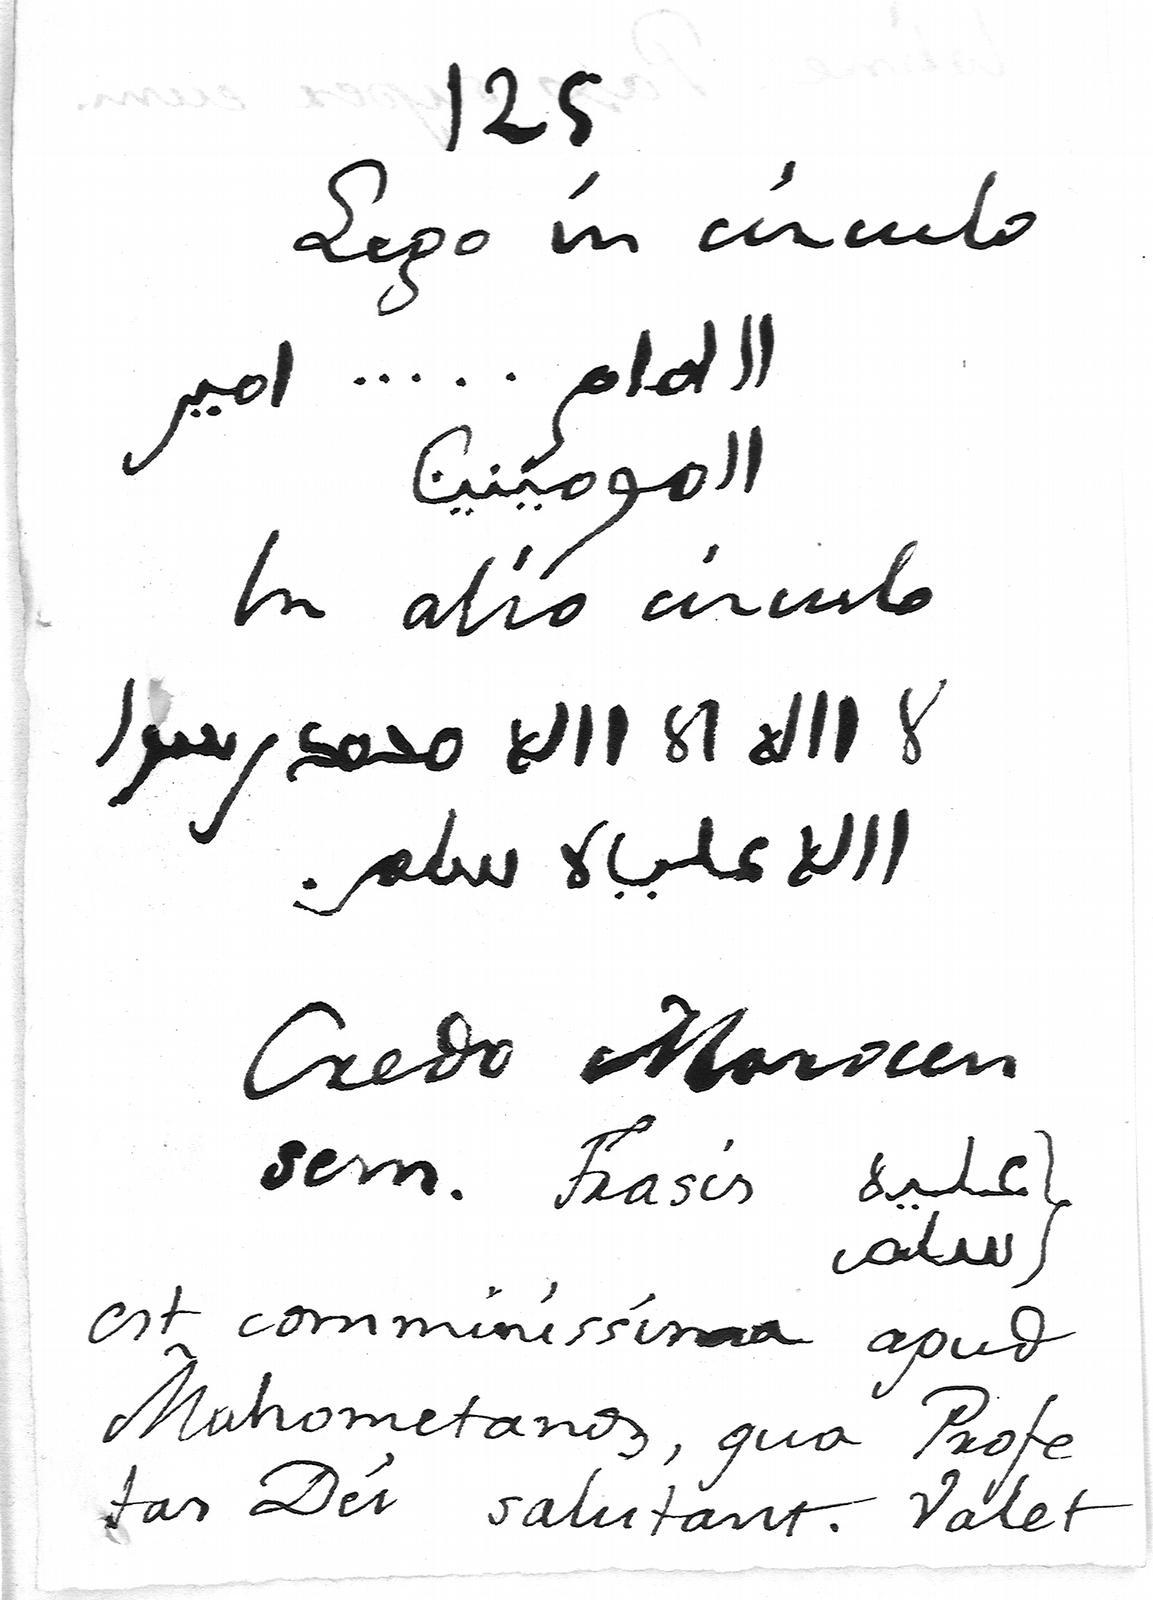 125
Lego in circulo
الامام ..... امير
المومينين
In alio circulo
لا االله الا االله محمد رسوا
االله عليه سلم.
Credo Marocen
sem. Frasis عليه
سلم
est comminissima apud
Mahometanos, qua Profe
tas Dei salutant. Valet